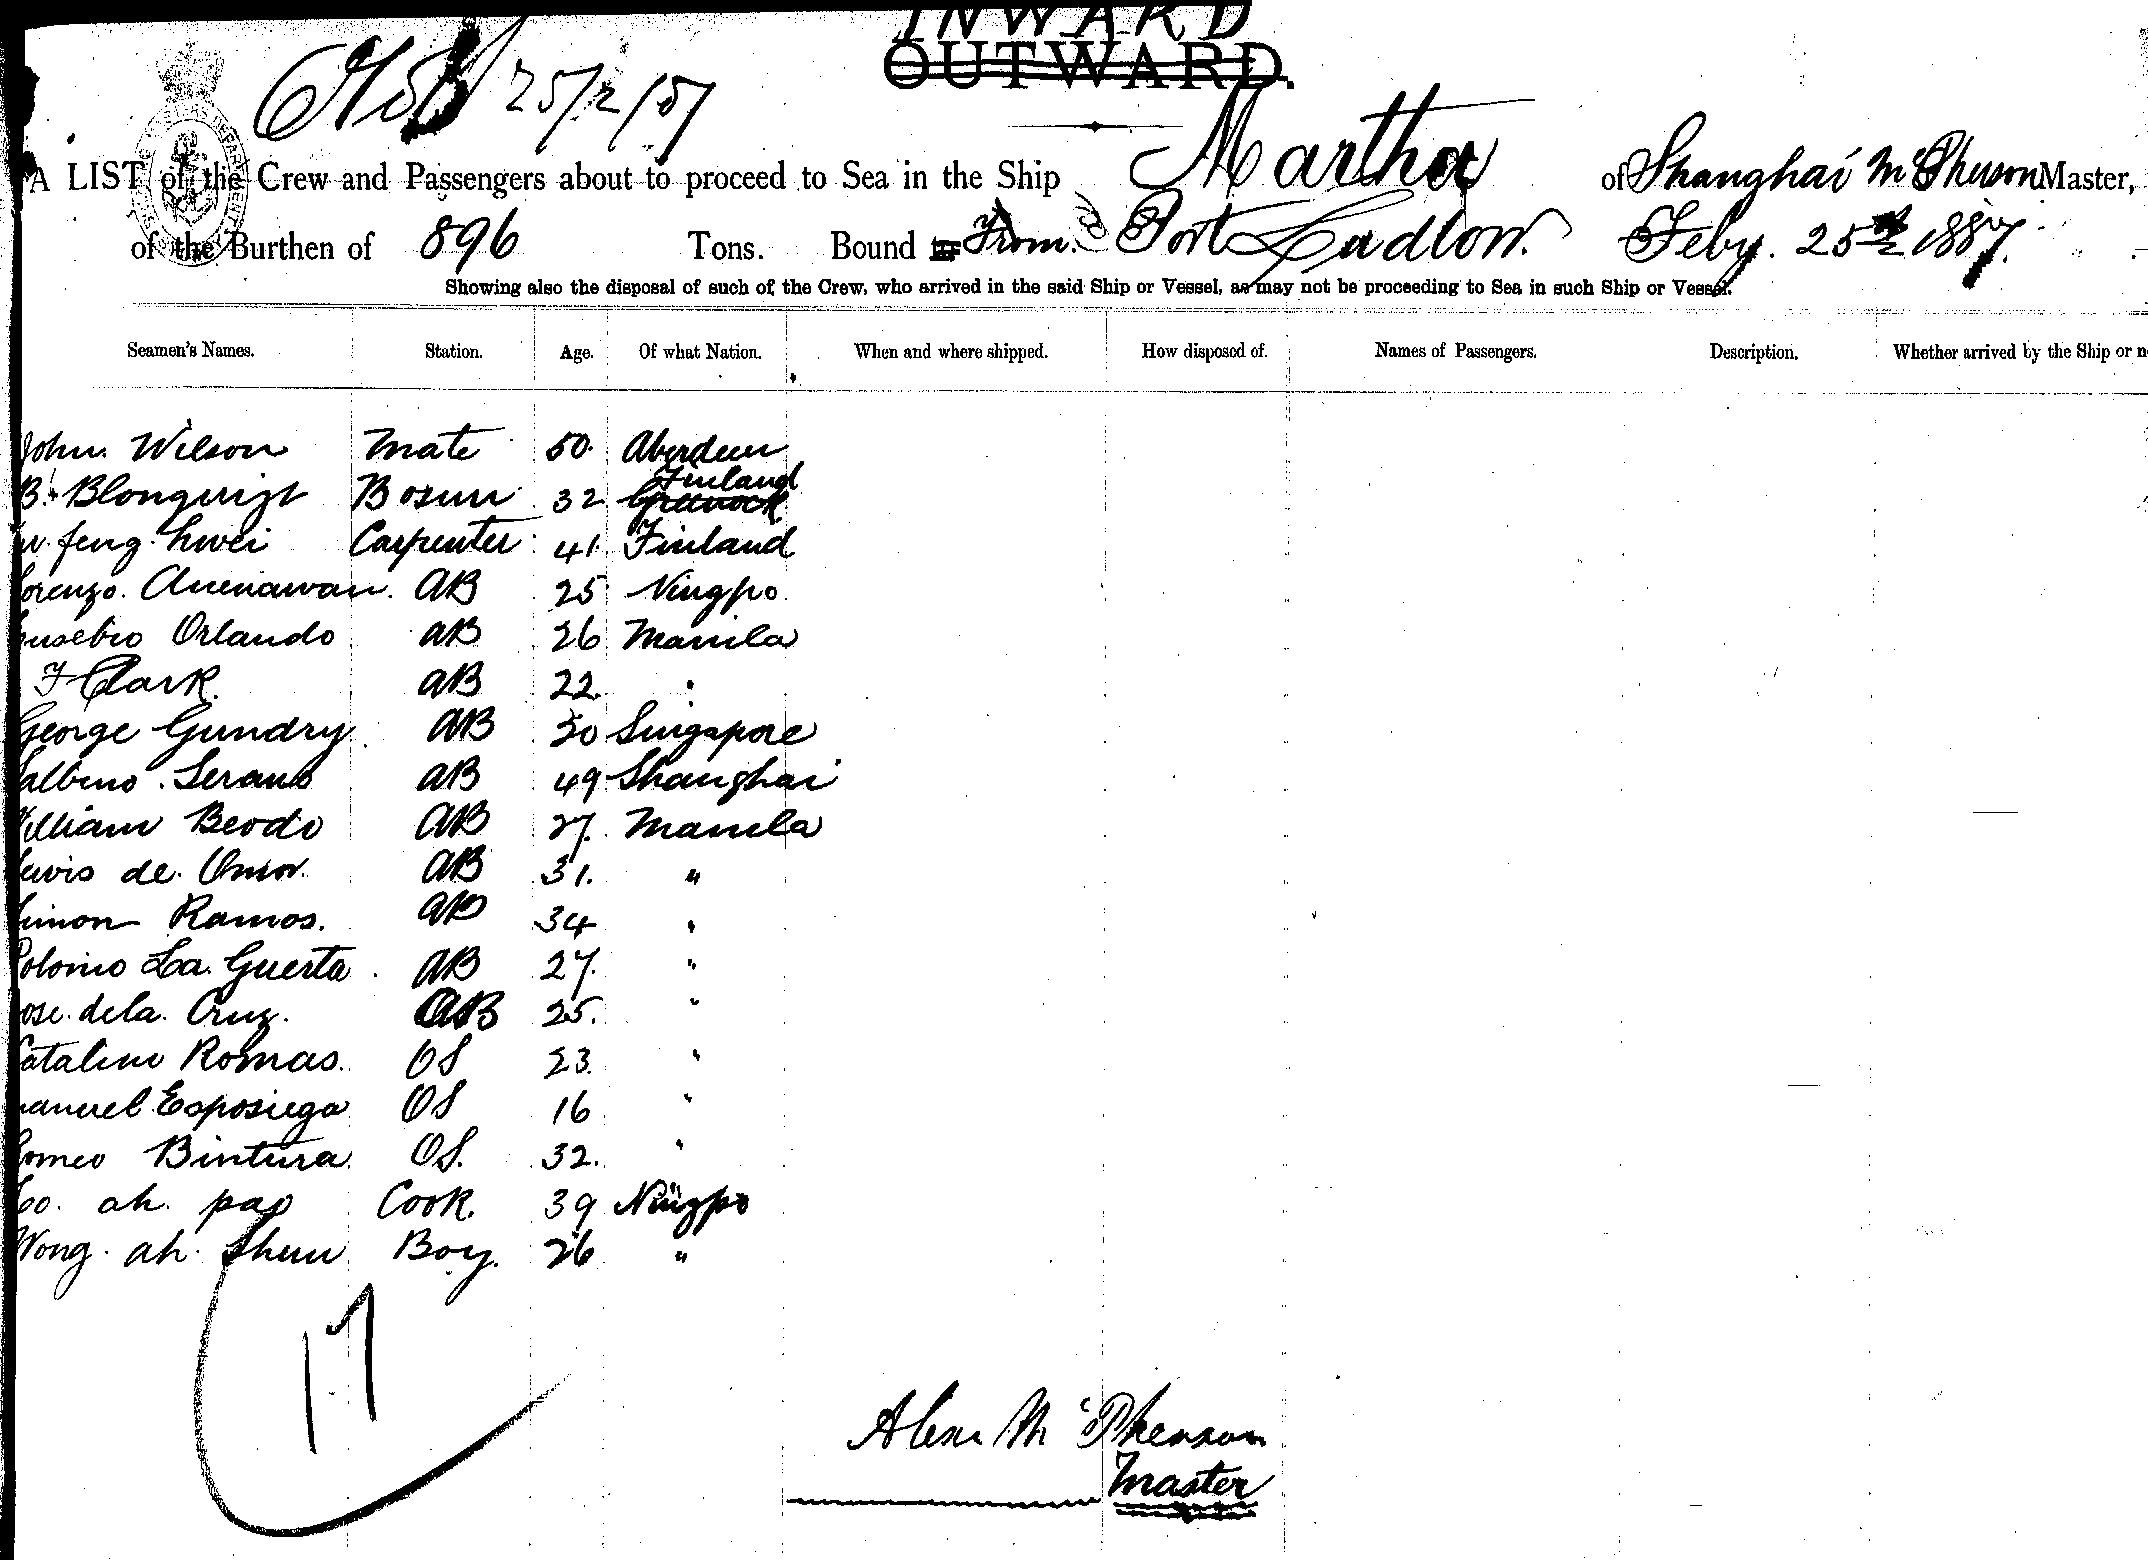 INWARD
OUTWARD.
25/2/87
A LIST of the Crew and Passengers about to proceed to Sea in the Ship Martha of Shanghai McPherson Master,
of the Burthen of 896 Tons. Bound to From Port Ludlow. Feby. 25th 1887.
Showing also the disposal of such of the Crew, who arrived in the said Ship or Vessel, as may not be proceeding to Sea in such Ship or Vessel.
Seamen's Names. Station. Age. Of what Nation. When and where shipped. How disposed of. Names of Passengers. Description. Whether arrived by the Ship or n
John Wilson Mate 50 Aberdeen
Finland
B. Blongvist Bosun 32 Greenock
feng hwei Carpenter 41 Finland
Lorenzo AB 25 Ningpo
Eusebio Orlando AB 26 Manila
F Clark AB 22 "
George Gundry AB 30 Singapore
albino Serano AB 49 Shanghai
William Beodo AB 27 Manila
Lewis de AB 31 "
Simon Ramos. AB 34 "
Polonio La Guerta AB 27 "
Jose dela Cruz. AB 25. "
Catalino Romas. OS 23. "
Manuel Esposiega OS 16 "
Romeo Bintura OS. 32. "
ah pao Cook. 39 Ningpo
Wong ah Shun Boy. 26 "
17
Alexr McPherson
Master